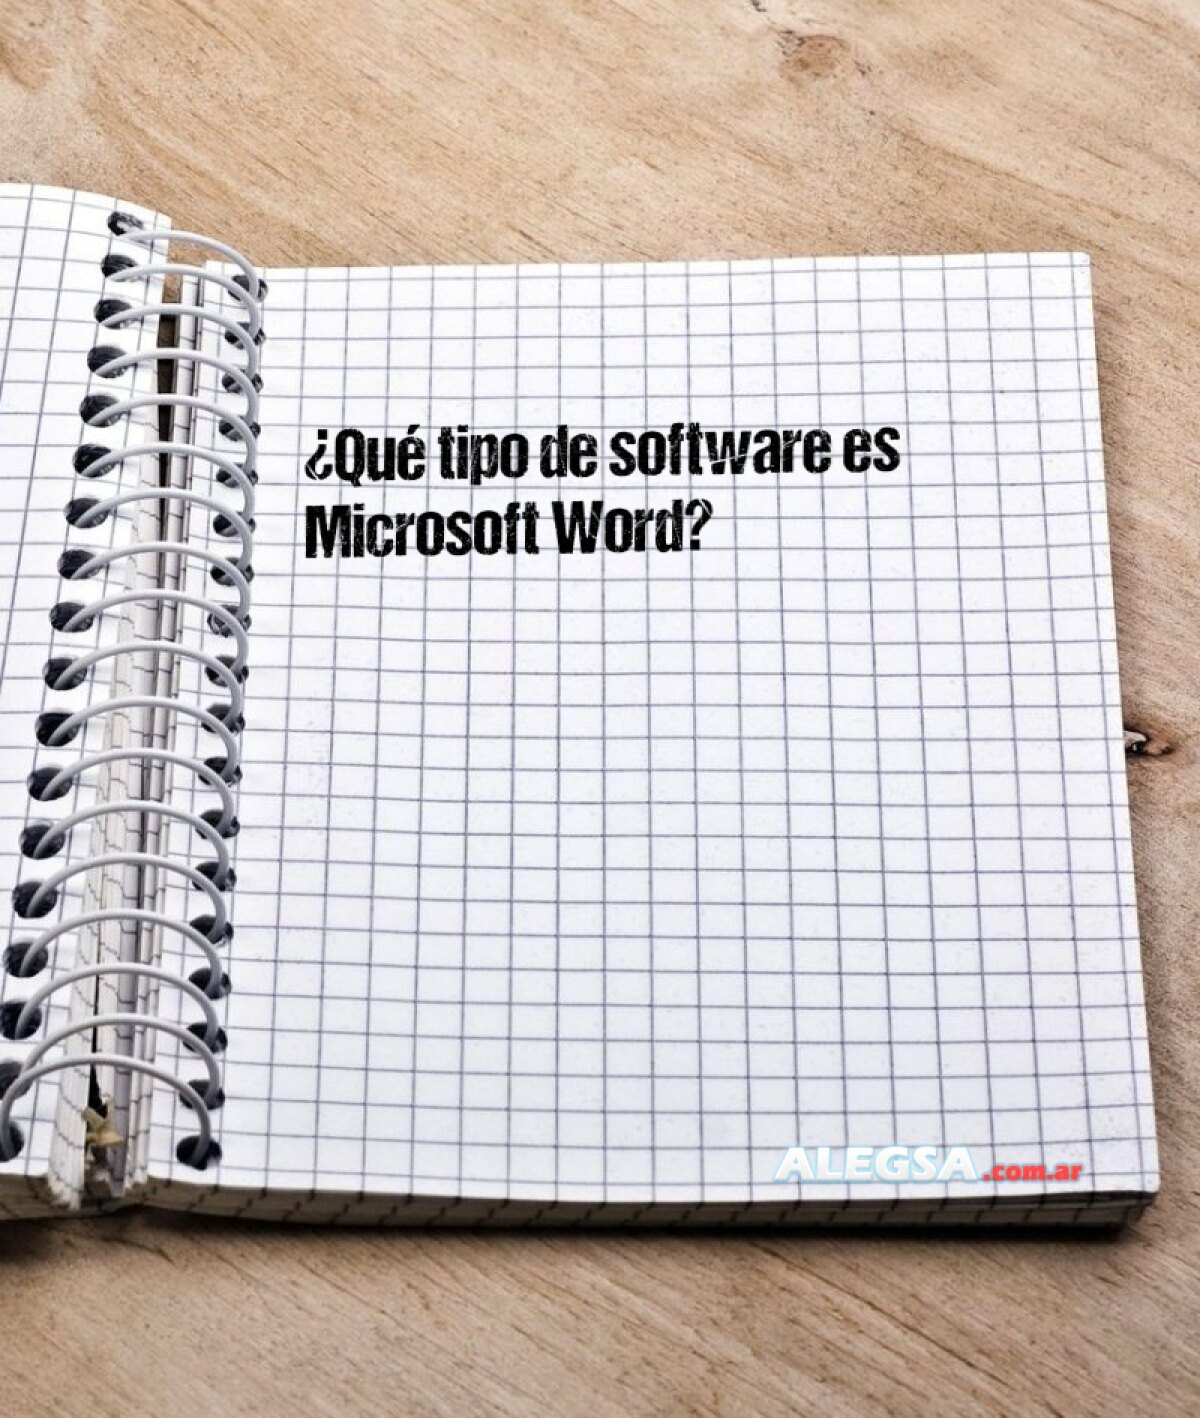 ¿Qué tipo de software es
Microsoft Word?
ALEGSA.com.ar